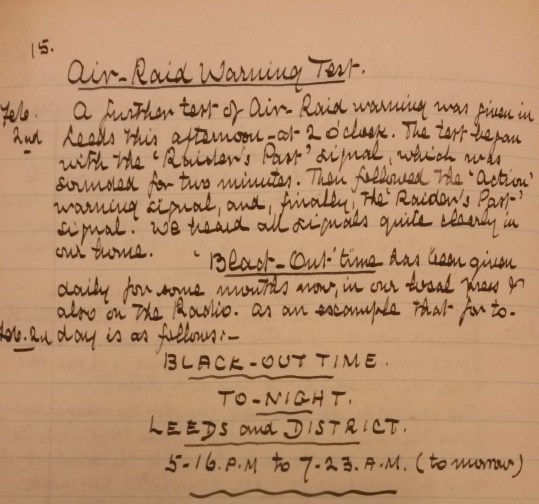 15.
Air-Raid Warning Test.
Feb. A further test of Air-Raid warning was given in
2nd Leeds this afternoon - at 2 o'clock. The test began
with the 'Raider's Past' signal, which was
sounded for two minutes. Then followed the 'Action'
warning signal, and, finally, the 'Raider's Past'
signal. We heard all signals quite clearly in
our home. 'Black-Out' time has been given
daily for some months now, in our local press &
also on the Radio. As an example that for to-
Feb. 2nd day is as follows:-
BLACK-OUT TIME.
TO-NIGHT.
LEEDS and DISTRICT.
5-16. P.M to 7-23. A.M. (to morrow)